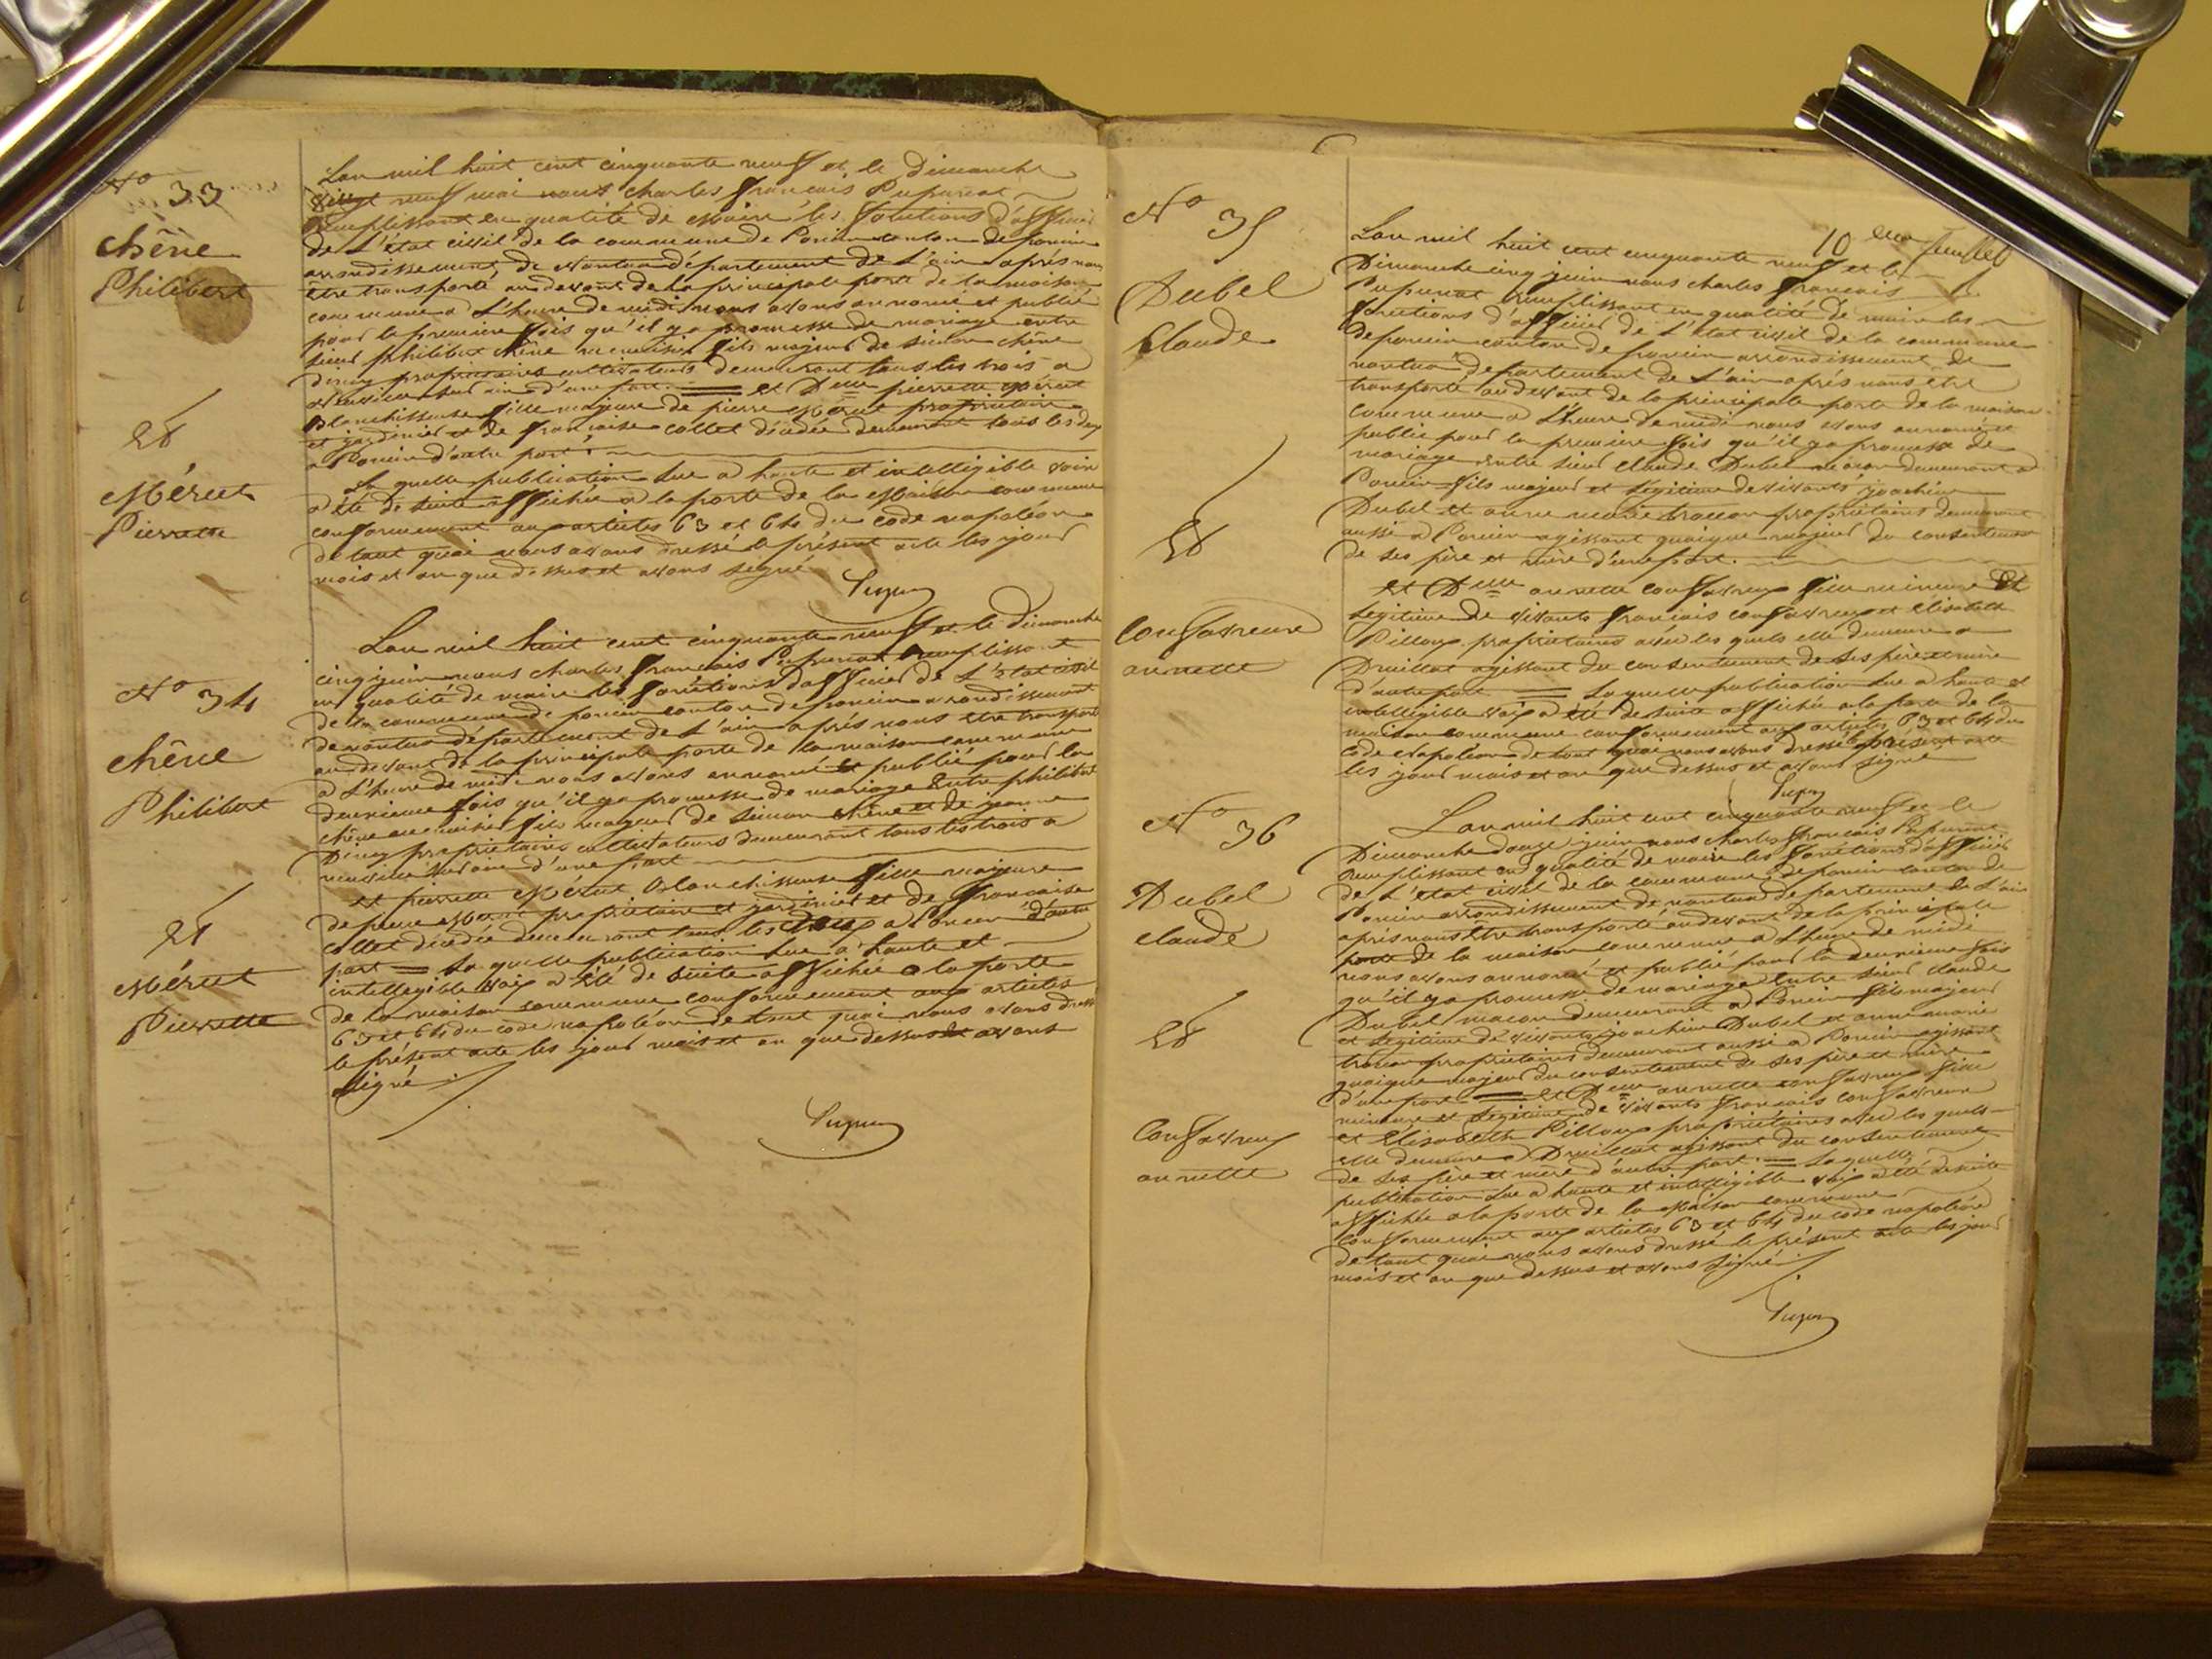 N° 33
chêne
Philibert
et
Mérut
Pierrette
L'an mil huit cent cinquante neuf et le dimanche
vingt neuf mai nous charles françois Pupunat
remplissant en qualité de Maire les fonctions d'officier
de l'état civil de la commune de Poncin canton de poncin
arrondissement de Nantua département de l'ain après nous
être transporté au devant de la principale porte de la maison
commune à l'heure de midi nous avons annoncé et publié
pour la première fois qu'il y a promesse de mariage entre
sieur philibert chêne menuisier fils majeur de simon chêne
propriétaires cultivateurs demeurant tous les trois a
Neuville sur ain d'une part = et Delle pierrette Mérut
Blanchisseuse fille majeure de pierre Mérut propriétaire
et jardinier et de françoise collet décédée demeurant tous les deux
a Poncin d'autre part
La quelle publication lue a haute et intelligible voix
a été de suite affichée a la porte de la Maison commune
conformement aux articles 63 et 64 du code napoléon
de tout quoi nous avons dressé le présent acte les jour
mois et an que dessus et avons signé
N° 34
chêne
Philibert
et
Mérut
Pierrette
L'an mil huit cent cinquante neuf et le dimanche
cinq juin nous charles françois Pupunat remplissant
en qualité de maire les fonctions d'officier de l'état civil
de la commune de poncin canton de poncin arrondissement
de nantua département de l'ain après nous etre transporté
au devant de la principale porte de la maison commune
a l'heure de midi nous avons annoncé et publié pour la
deuxieme fois qu'il y a promesse de mariage entre philibert
chêne menuisier fils majeur de simon chêne et de jeanne
propriétaires cultivateurs demeurant tous les trois a
neuville sur ain d'une part
et pierrette Mérut Blanchisseuse fille majeure
de pierre Mérut propriétaire et jardinier et de françoise
collet décédée demeurant tous les deux a Poncin d'autre
part = La quelle publication lue a haute et
intellegible voix a été de suite affichée a la porte
de la maison commune conformement aux articles
63 et 64 du code napoléon de tout quoi nous avons dressé
le présent acte les jour mois et an que dessus et avons
signé
10 eme feuillet
N° 35
Dubel
Claude
et
Convavreux
annette
L'an mil huit cent cinquante neuf et le
Dimanche cinq juin nous charles françois
Pupunat remplissant en qualité de maire les
fonctions d'officier de l'état civil de la commune
de poncin canton de poncin arrondissement de
nantua département de l'ain après nous être
transporté au devant de la principale porte de la maison
commune a l'heure de midi nous avons annoncé et
publié pour la première fois qu'il y a promesse de
mariage entre sieur claude Dubel maçon demeurant a
Poncin fils majeur et légitime de vivants joachim
Dubel et anne marie propriétaires demeurant
aussi a Poncin agissant quoique majeur du consentement
de ses père et mère d'une part
et Delle annette fille mineure et
légitime de vivants françois et Elisabeth
Pilloux propriétaires avec les quels elle demeure a
Druillat agissant du consentement de ses père et mère
d'autre part = La quelle publication lue a haute et
intellegible voix a été de suite affichée a la porte de la
maison commune conformement aux articles 63 et 64 du
code Napoléon de tout quoi nous avons dressé le présent acte
les jour mois et an que dessus et avons signé
N° 36
Dubel
claude
et
annette
L'an mil huit cent cinquante neuf et le
Dimanche douze juin nous charles françois Pupunat
remplissant en qualité de maire les fonctions d'officier
de l'état civil de la commune de poncin canton de
Poncin arrondissement de nantua département de l'ain
après nous être transporté au devant de la principale
porte de la maison commune a l'heure de midi
nous avons annoncé et publié pour la deuxieme fois
qu'il y a promesse de mariage entre sieur claude
Dubel maçon demeurant a Poncin fils majeur
et légitime de vivants joachim Dubel et anne marie
propriétaires demeurant aussi a Poncin agissant
quoique majeur du consentement de ses père et mère
d'une part = et Delle annette fille
mineure et légitime de vivants françois
et Elisabeth Pilloux propriétaires avec les quels
elle demeure a Druillat agissant du consentement
de ses père et mère d'autre part = La quelle
publication lue a haute et intelligible voix a été de suite
affichée a la porte de la Maison commune
conformement aux articles 63 et 64 du code napoléon
de tout quoi nous avons dressé le présent acte les jour
mois et an que dessus et avons signé